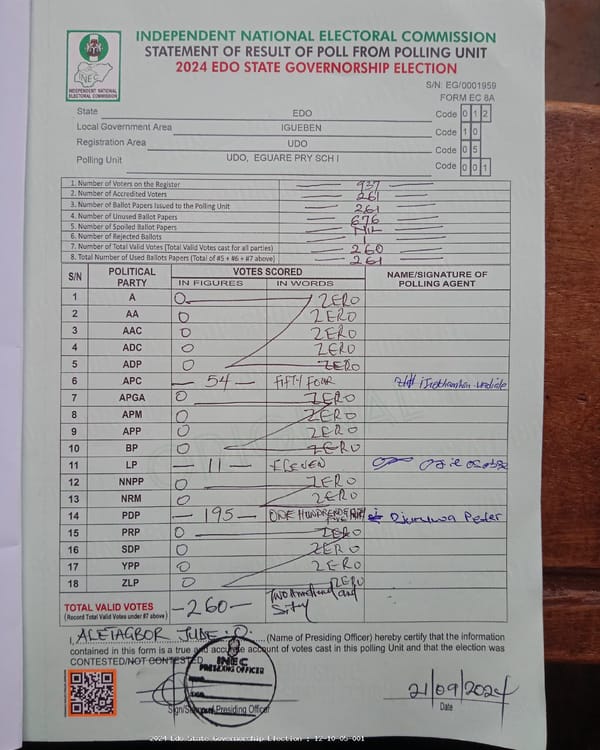 INDEPENDENT NATIONAL ELECTORAL COMMISSION
STATEMENT OF RESULT OF POLL FROM POLLING UNIT
2024 EDO STATE GOVERNORSHIP ELECTION
INEC
INDEPENDENT NATIONAL ELECTORAL COMMISSION
S/N: EG/0001959
FORM EC 8A
State EDO Code 0 1 2
Local Government Area IGUEBEN Code 1 0
Registration Area UDO Code 0 5
Polling Unit UDO, EGUARE PRY SCH I Code 0 0 1
1. Number of Voters on the Register 937
2. Number of Accredited Voters 261
3. Number of Ballot Papers Issued to the Polling Unit 261
4. Number of Unused Ballot Papers 676
5. Number of Spoiled Ballot Papers NIL
6. Number of Rejected Ballots 1
7. Number of Total Valid Votes (Total Valid Votes cast for all parties) 260
8. Total Number of Used Ballots Papers (Total of #5 + #6 + #7 above) 261
S/N POLITICAL PARTY VOTES SCORED NAME/SIGNATURE OF POLLING AGENT
IN FIGURES IN WORDS
1 A 0 ZERO
2 AA 0 ZERO
3 AAC 0 ZERO
4 ADC 0 ZERO
5 ADP 0 ZERO
6 APC 54 FIFTY FOUR
7 APGA 0 ZERO
8 APM 0 ZERO
9 APP 0 ZERO
10 BP 0 ZERO
11 LP 11 ELEVEN
12 NNPP 0 ZERO
13 NRM 0 ZERO
14 PDP 195 ONE HUNDRED Peter
15 PRP 0 ZERO
16 SDP 0 ZERO
17 YPP 0 ZERO
18 ZLP 0 ZERO
TOTAL VALID VOTES 260 Two hundred and
(Record Total Valid Votes under #7 above) Sity
I, ALETAGBOR JUDE .O. (Name of Presiding Officer) hereby certify that the information
contained in this form is a true and accurate account of votes cast in this polling Unit and that the election was
CONTESTED/NOT CONTESTED
INEC
PRESIDING OFFICER
Presiding Officer
21/09/2024
Date
2024 Edo State Governorship Election : 12-10-05-001